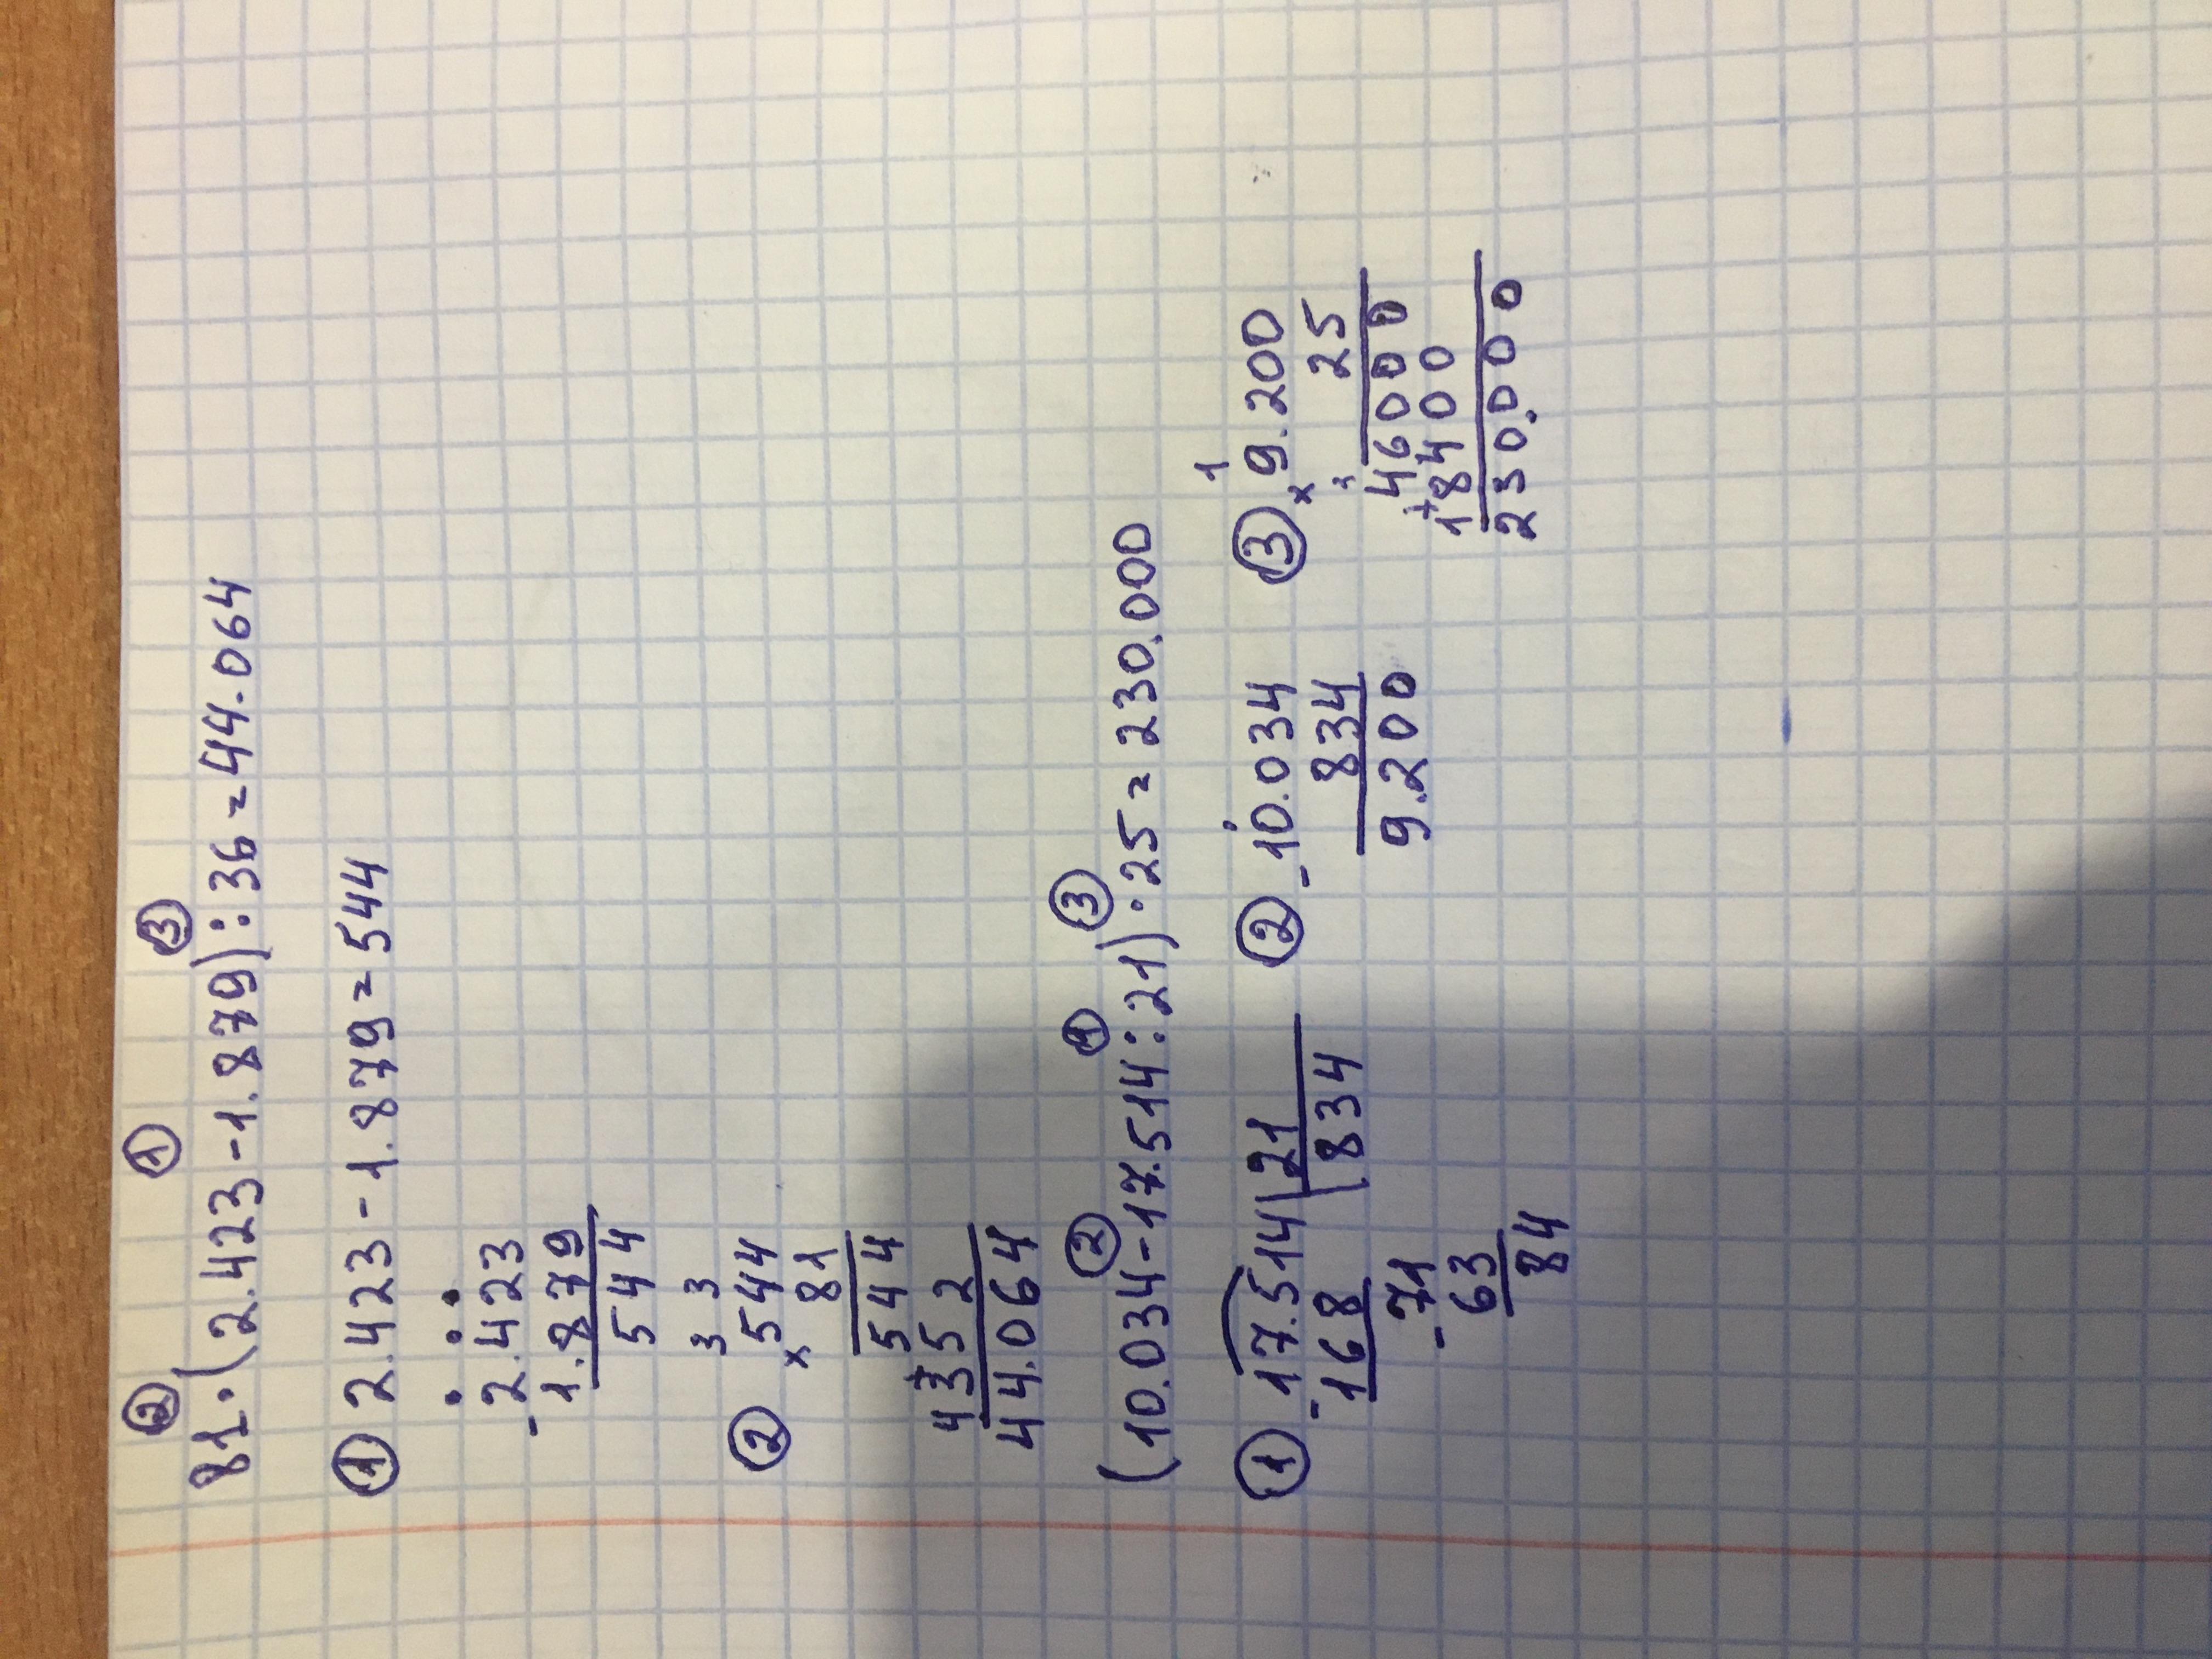 ② ① ③
81·(2.423-1.879):36=44.064
① 2.423-1.879=544
-2.423
1.879
544
3 3
② ×544
81
544
+
4352
44.064
② ① ③
(10.034-17.514:21)·25=230.000
① 17.514 21
-168 834
-71
63
84
② -10.034
834
9.200
1
③ ×9.200
25
46000
+
18400
230.000